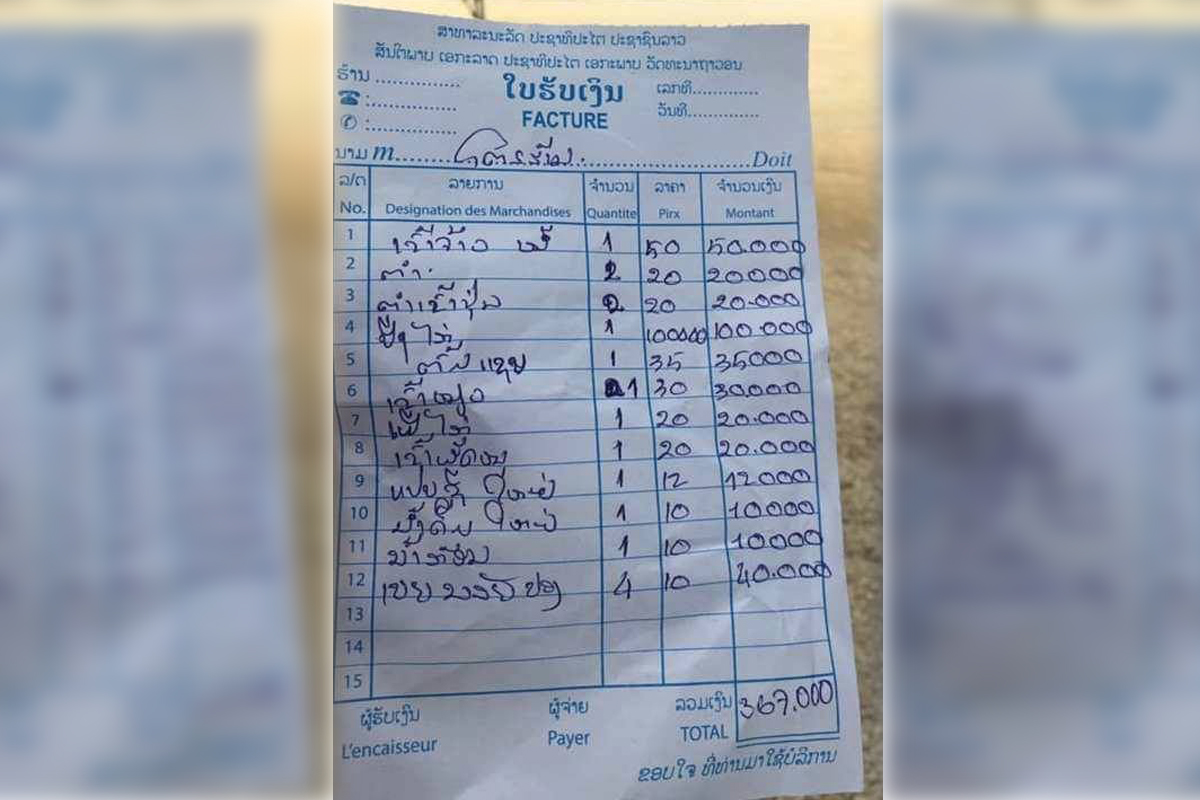 ສາທາລະນະລັດ ປະຊາທິປະໄຕ ປະຊາຊົນລາວ
ສັນຕິພາບ ເອກະລາດ ປະຊາທິປະໄຕ ເອກະພາບ ວັດທະນາຖາວອນ
ຮ້ານ .............. ໃບຮັບເງິນ ເລກທີ..............
☎ :.............. FACTURE ວັນທີ..............
✆ :..............
ນາມ m.......... ..............................Doit
ລ/ດ ລາຍການ ຈຳນວນ ລາຄາ ຈຳນວນເງິນ
No. Designation des Marchandises Quantite Pirx Montant
1 1 50 50.000
2 ຕຳ 2 20 20000
3 ຕຳເຂົ້າປຸ້ນ 2 20 20.000
4 ປີ້ງໄກ່ 1 100000 100.000
5 ຕົ້ມແຊບ 1 35 35000
6 1 30 30.000
7 1 20 20.000
8 1 20 20.000
9 ແປບຊີ ໃຫຍ່ 1 12 12000
10 ນ້ຳດື່ມ ໃຫຍ່ 1 10 10000
11 ນ້ຳກ້ອນ 1 10 10000
12 4 10 40.000
13
14
15
ຜູ້ຮັບເງິນ ຜູ້ຈ່າຍ ລວມເງິນ 367.000
L'encaisseur Payer TOTAL
ຂອບໃຈ ທີ່ທ່ານມາໃຊ້ບໍລິການ